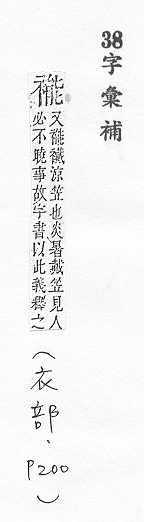 38字彙補
褦
又褦襶涼笠也炎暑戴笠見人
必不曉事故字書以此義釋之
(衣部、P200)